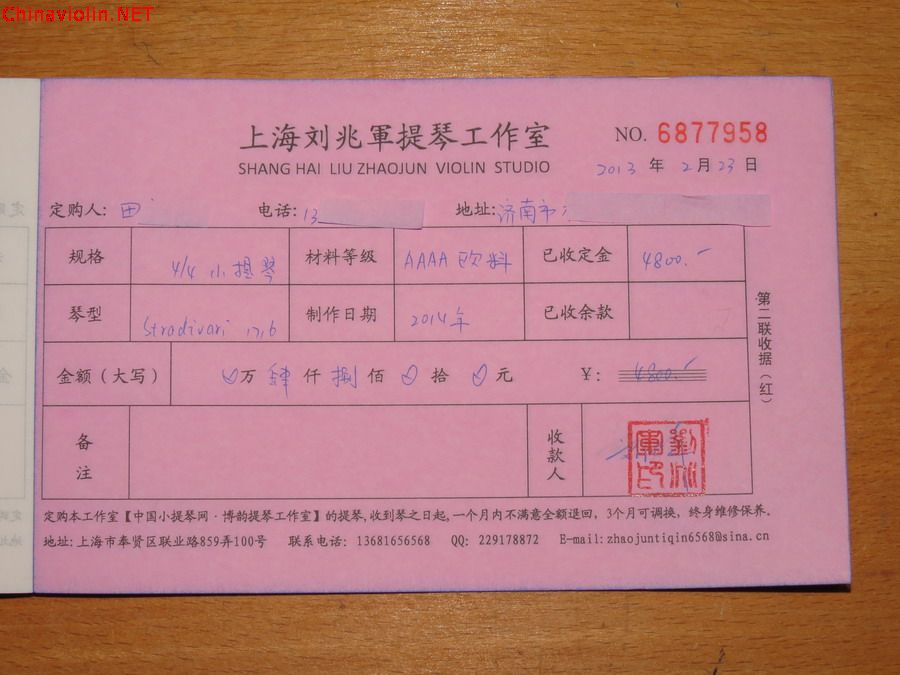 Chinaviolin.NET
上海刘兆軍提琴工作室
NO. 6877958
SHANG HAI LIU ZHAOJUN VIOLIN STUDIO
2013 年 2 月 23 日
定购人: 田 电话: 13 地址: 济南市
规格 4/4 小提琴 材料等级 AAAA 欧料 已收定金 4800.-
琴型 Stradivari 1716 制作日期 2014年 已收余款
金额(大写) 0万 肆 仟 捌 佰 0 拾 0 元 ¥: 4800.-
备注 收款人
第二联收据(红)
定购本工作室【中国小提琴网·博韵提琴工作室】的提琴,收到琴之日起,一个月内不满意全额退回，3个月可调换，终身维修保养.
地址: 上海市奉贤区联业路859弄100号 联系电话: 13681656568 QQ: 229178872 E-mail: zhaojuntiqin6568@sina.cn